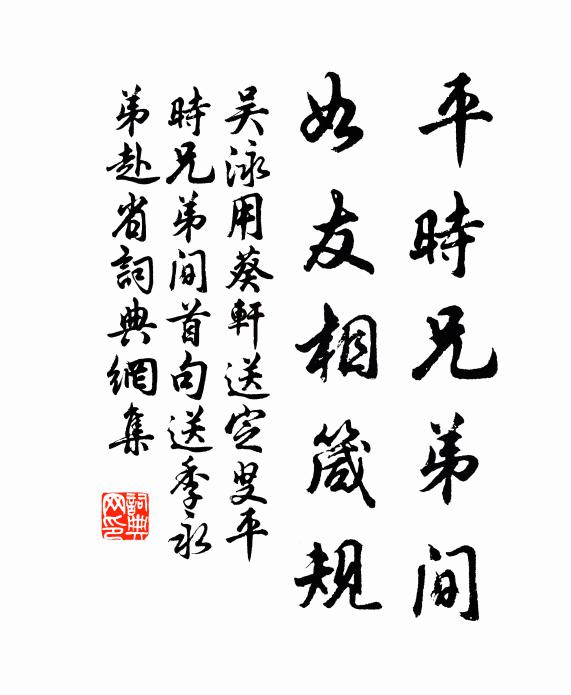 平時兄弟間
如友相箴規
吳泳用葵軒送定叟平
時兄弟間首句送季永
弟赴省詞典網集
詞典網印